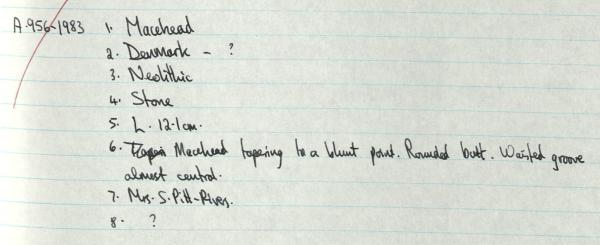 A.956-1983 1. Macehead
2. Denmark - ?
3. Neolithic
4. Stone
5. L. 12.1cm.
6. Macehead tapering to a blunt point. Rounded butt. Waisted groove
almost central.
7. Mrs. S. Pitt-Rivers.
8. ?